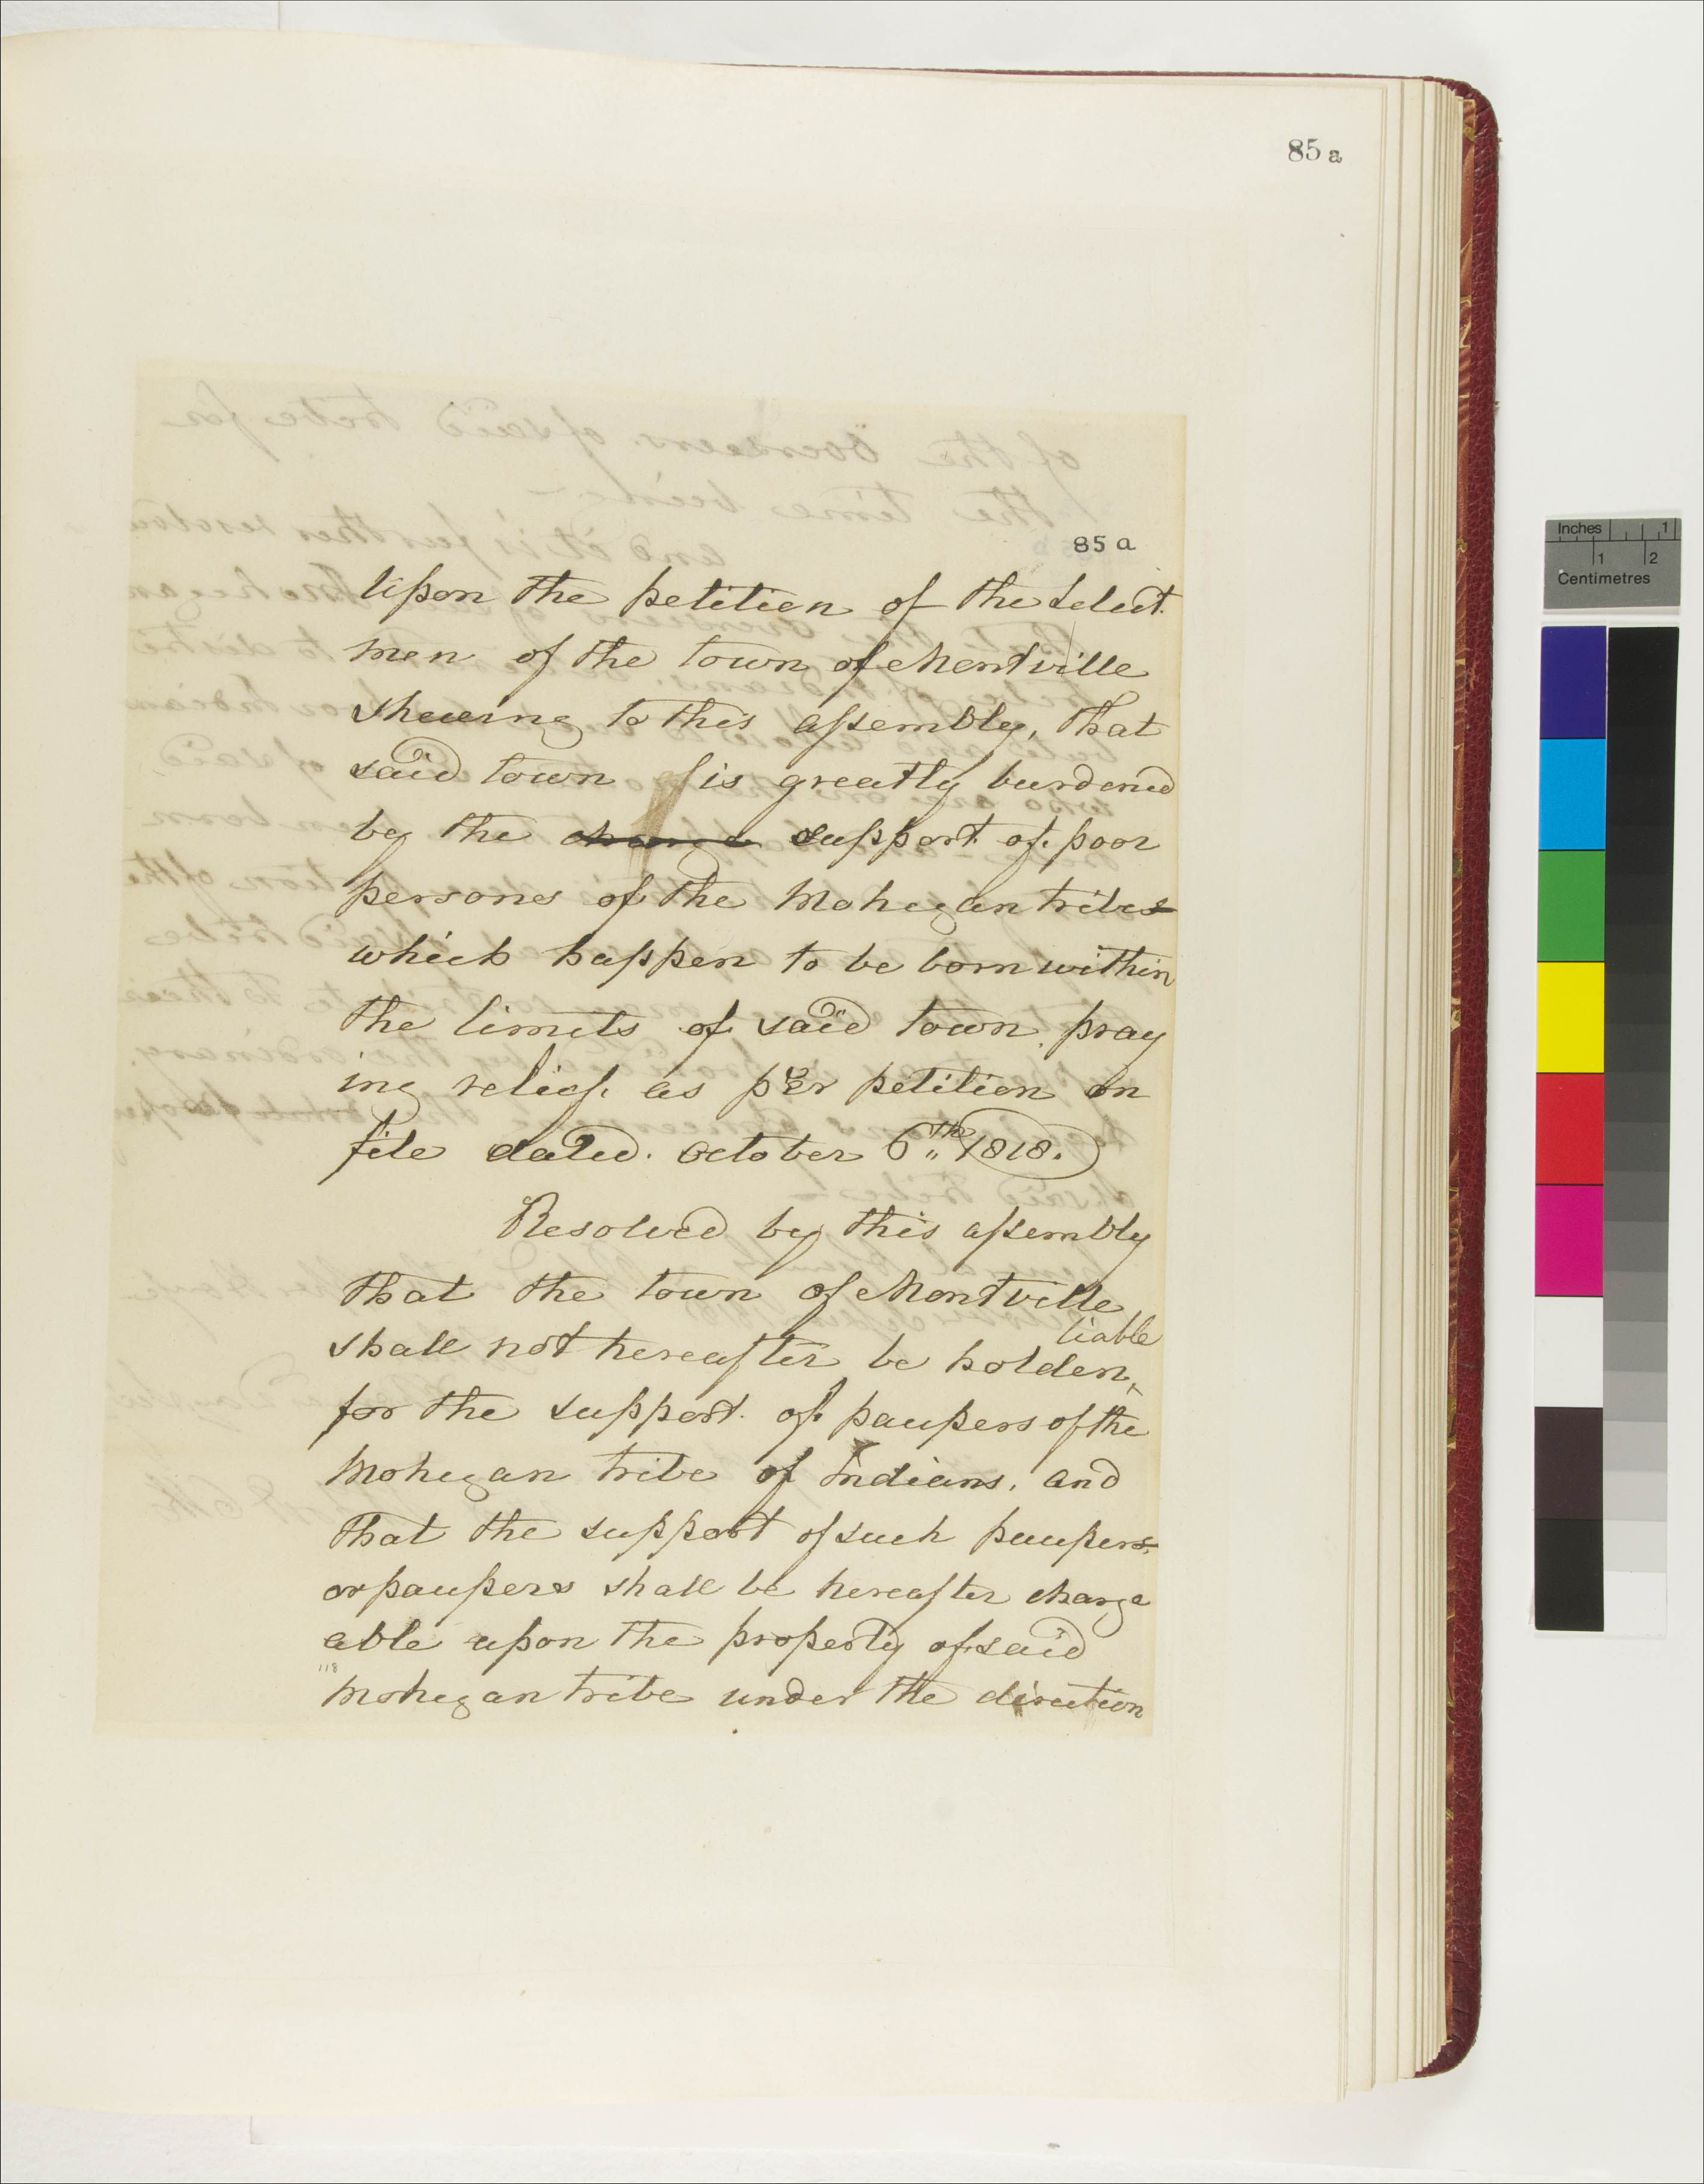 85 a
85 a
Upon the petition of the Select
men of the town of Montville
shewing to this assembly, that
said town is greatly burdened
by the charge support of poor
persons of the Mohegan tribes
which happen to be born within
the limits of said town pray
ing relief. as per petition on
file dated. October 6th 1818.
Resolved by this assembly
that the town of Montville
liable
shall not hereafter be holden
for the support of paupers of the
Mohegan tribe of Indians, and
that the support of such paupers
or paupers shall be hereafter charge
able upon the property of said
118
Mohegan tribe under the direction
Inches 1
1 2
Centimetres